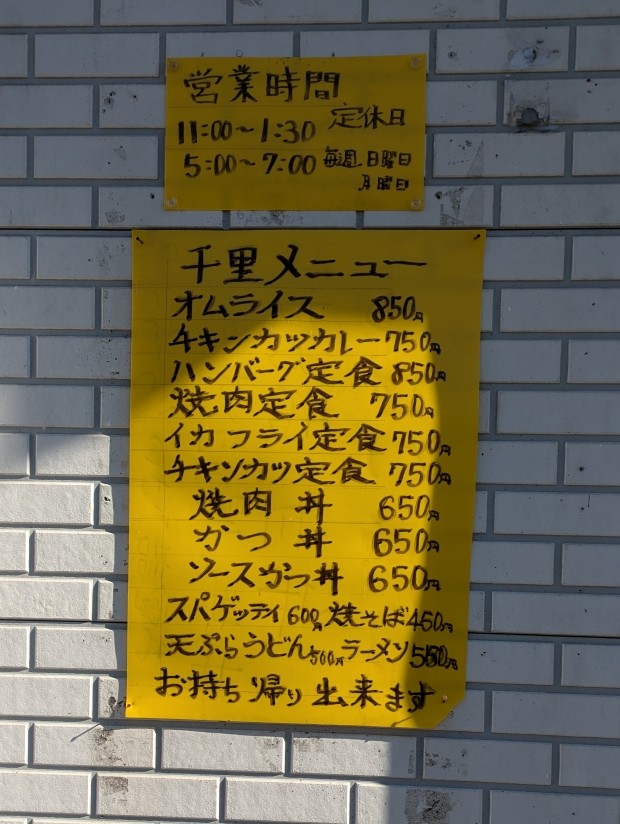 営業時間
11:00～1:30 定休日
5:00～7:00 毎週日曜日
月曜日
千里メニュー
オムライス 850円
チキンカツカレー750円
ハンバーグ定食 850円
焼肉定食 750円
イカフライ定食 750円
チキンカツ定食 750円
焼肉丼 650円
かつ丼 650円
ソースかつ丼 650円
スパゲッティ 600円 焼そば450円
天ぷらうどん500円 ラーメン550円
お持ち帰り出来ます